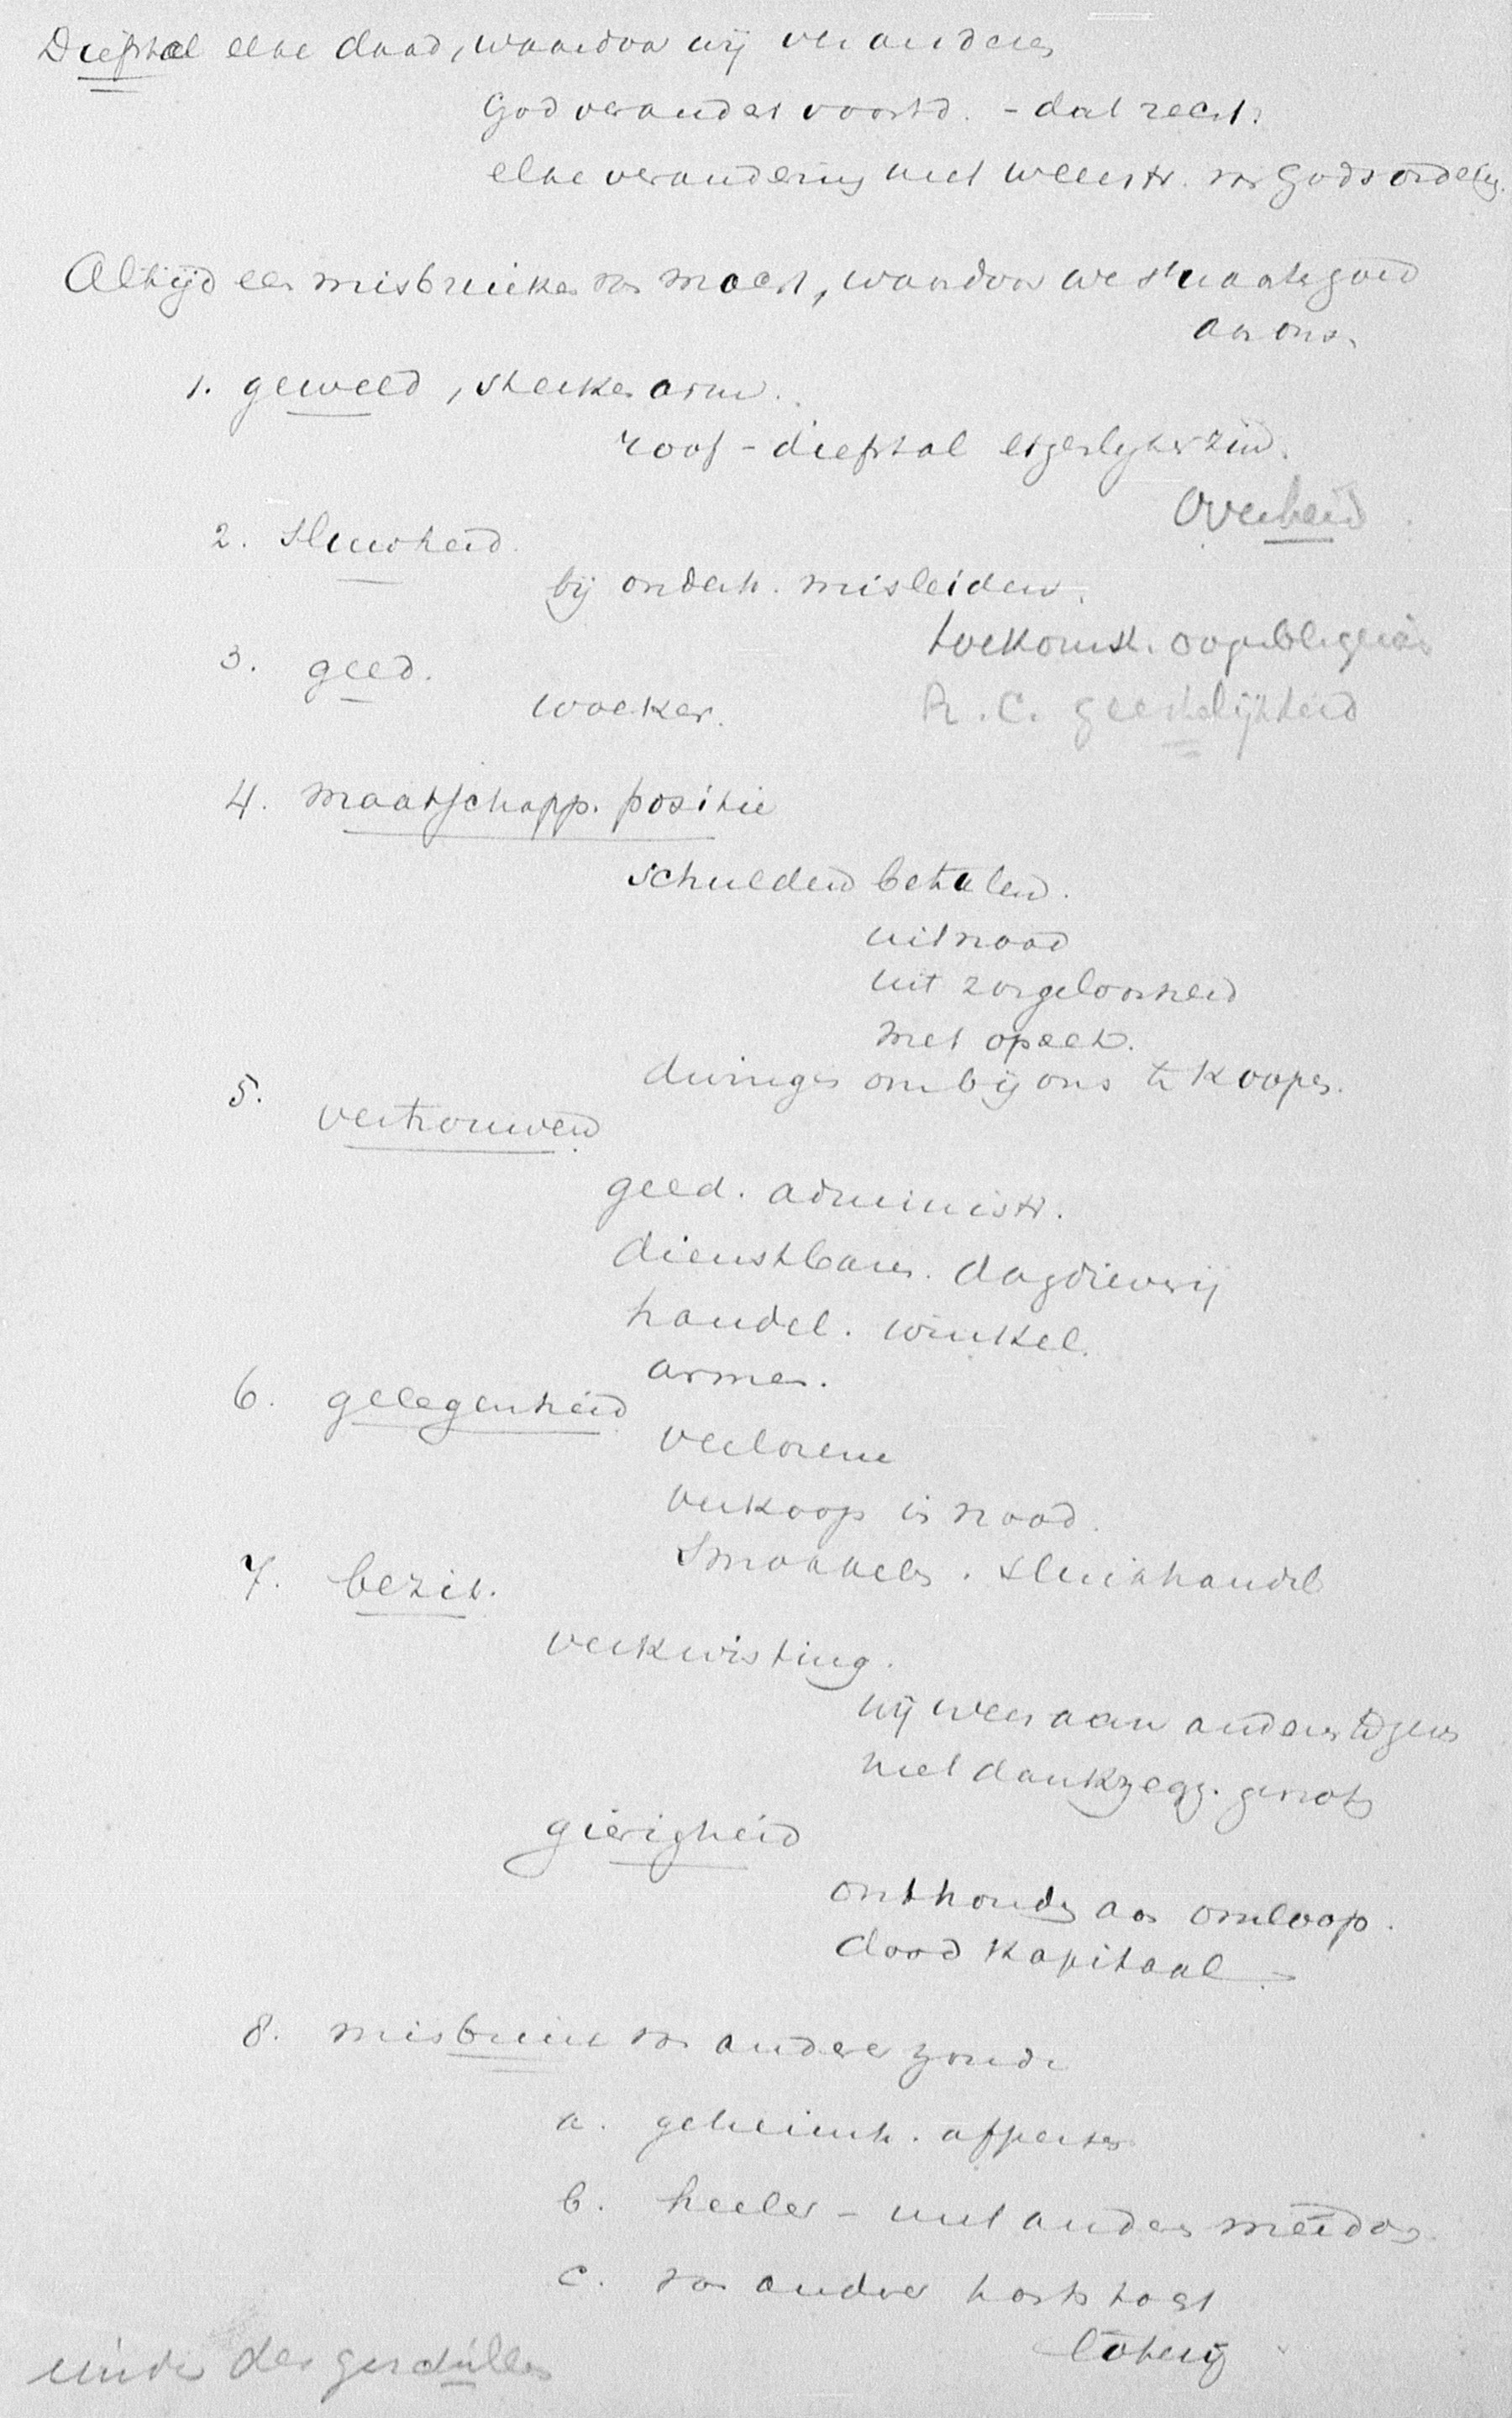 Diefstal elke daad, waardoor wij veranderen
God verandert voortd. - dat recht.
elke verandering met weerstr. van Gods ordeling.
Altijd een misbruiken van macht, waardoor we 't
aan ons.
1. geweld, sterke arm.
roof - diefstal eigenlijken zin.
Overheid
2. sluwheid.
bij onderh. misleiden.
toekomst.
3. geld.
woeker.
R.C. geestelijkheid
4. maatschapp. positie
schulden betalen.
uit nood
uit zorgeloosheid
met opzet.
dwingen om bij ons te koopen.
5. vertrouwen
geld. administr.
dienstbaren. dagdieverij
handel. winkel.
armen.
6. gelegenheid
verlorene
verkoop in nood.
Smokkelen. sluikhandel
7. bezit.
verkwisting.
wij weer aan anderen te geven
met dankzegg. genot
gierigheid
onthouden aan omloop.
dood kapitaal
8. misbruik van andere zonde
a. geheimh. afpersen
b. heeler - met anderen meedoen
c. van andere hartstocht
loterij
einde der